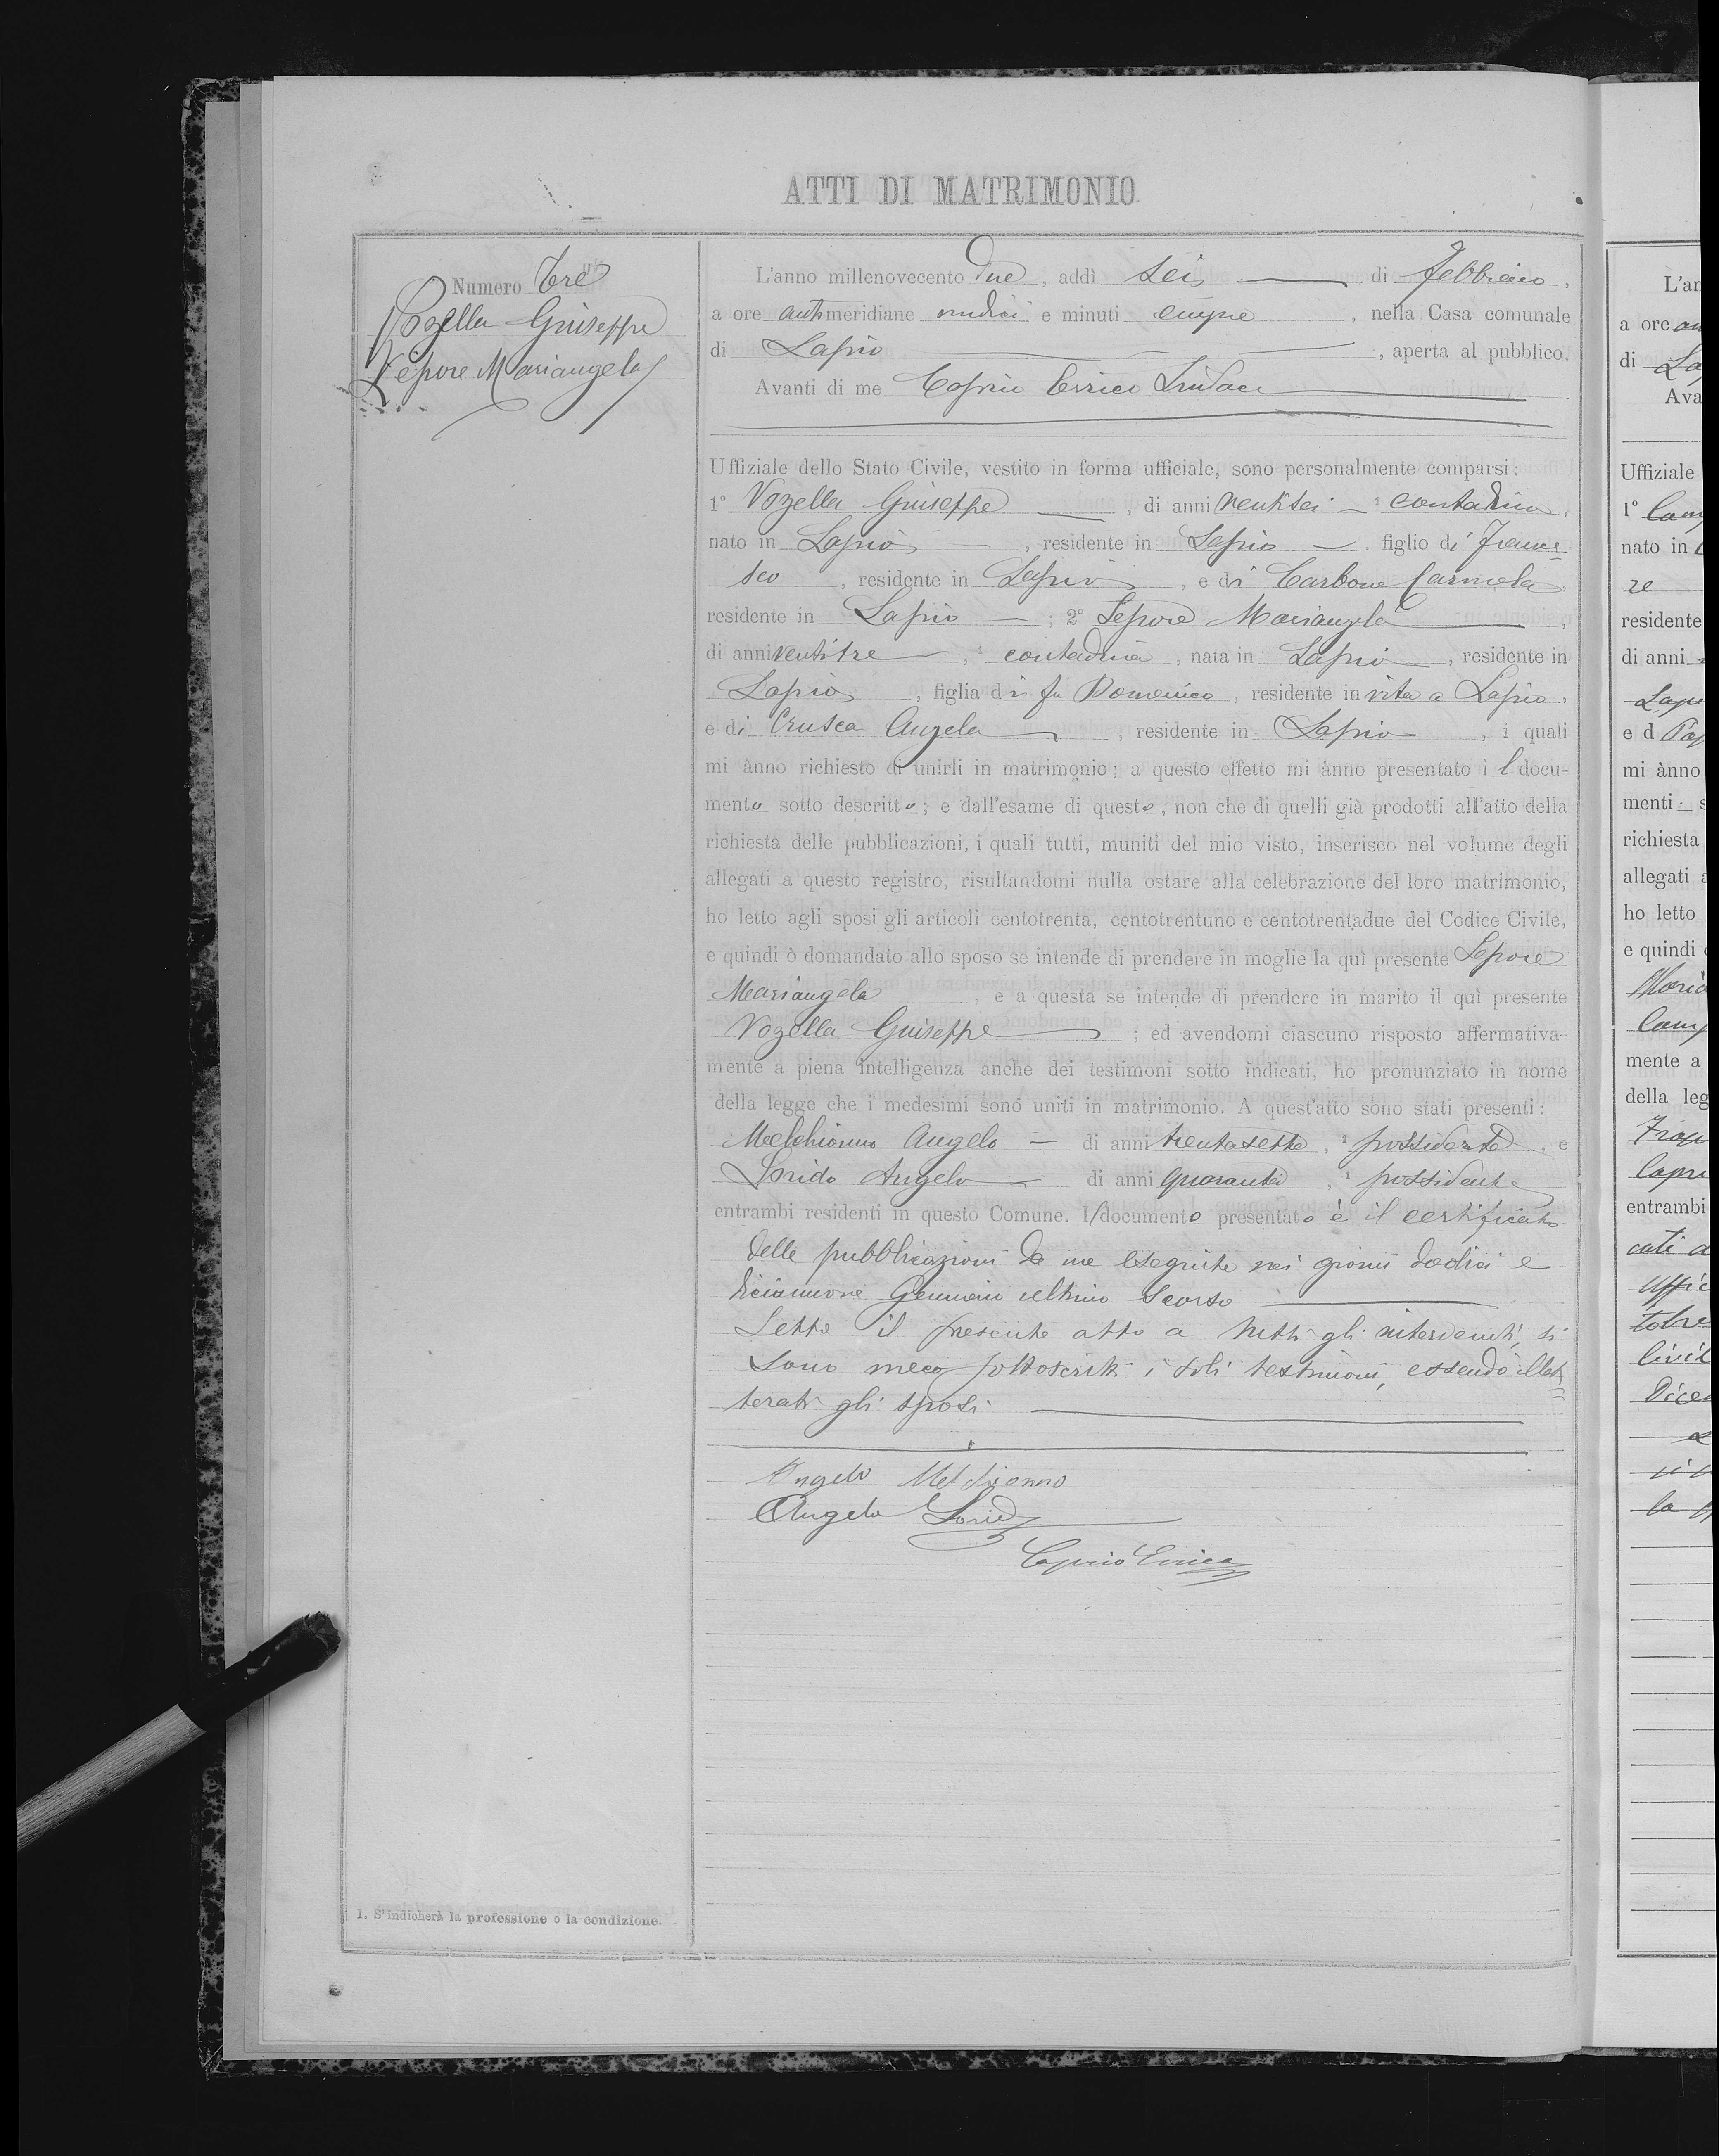 ATTI DI MATRIMONIO
Numero Tre
Vozella Giuseppe
Lepore Mariangela
L'anno millenovecento due, addì sei di Febbraio,
a ore antimeridiane undici e minuti cinque, nella Casa comunale
di Lapio, aperta al pubblico.
Avanti di me Caprio Errico Sindaco
Uffiziale dello Stato Civile, vestito in forma ufficiale, sono personalmente comparsi:
1° Vozella Giuseppe, di anni ventisei 1 contadino,
nato in Lapio, residente in Lapio, figlio di France=
sco, residente in Lapio, e di Carbone Carmela
residente in Lapio; 2° Lepore Mariangela,
di anni ventitre, 1 contadina, nata in Lapio, residente in
Lapio, figlia di fu Domenico, residente in vita a Lapio,
e di Crusca Angela, residente in Lapio, i quali
mi ànno richiesto di unirli in matrimonio; a questo effetto mi ànno presentato il docu-
mento sotto descritto; e dall'esame di questo, non che di quelli già prodotti all'atto della
richiesta delle pubblicazioni, i quali tutti, muniti del mio visto, inserisco nel volume degli
allegati a questo registro, risultandomi nulla ostare alla celebrazione del loro matrimonio,
ho letto agli sposi gli articoli centotrenta, centotrentuno e centotrentadue del Codice Civile,
e quindi ò domandato allo sposo se intende di prendere in moglie la quì presente Lepore
Mariangela, e a questa se intende di prendere in marito il quì presente
Vozella Giuseppe; ed avendomi ciascuno risposto affermativa-
mente a piena intelligenza anche dei testimoni sotto indicati, ho pronunziato in nome
della legge che i medesimi sono uniti in matrimonio. A quest'atto sono stati presenti:
Melchionno Angelo di anni trentasette, 1 possidente, e
Lorido Angelo di anni quaranta, 1 possidente
entrambi residenti in questo Comune. Il documento presentato è il certificato
delle pubblicazioni da me eseguite nei giorni dodici e
diciannove Gennaio ultimo scorso
Letto il presente atto a tutti gli intervenuti, si
sono meco sottoscritti i soli testimoni, essendo illet=
terati gli sposi
Angelo Melchionno
Angelo
Caprio Errico
1. S'indicherà la professione o la condizione.
L'an
a ore an
di La
Ava
Uffiziale
1° Cam
nato in
re
residente
di anni
Lapi
e d Pap
mi ànno
menti s
richiesta
allegati a
ho letto
e quindi
Maria
Camp
mente a
della leg
Capri
entrambi
cati a
uffic
tobre
Civil
Dice
la